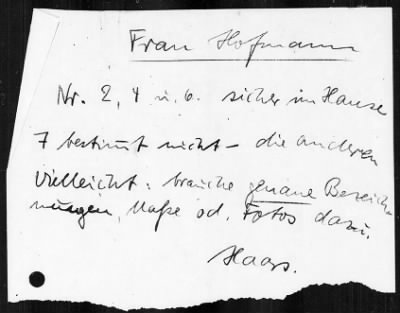 Frau Hofmann
Nr. 2, 4 u. 6. sicher im Hause
7 bestimt nicht – die anderen
vielleicht: brauche genaue Bezeich-
nungen, Maße od. Fotos dazu.
Haas.